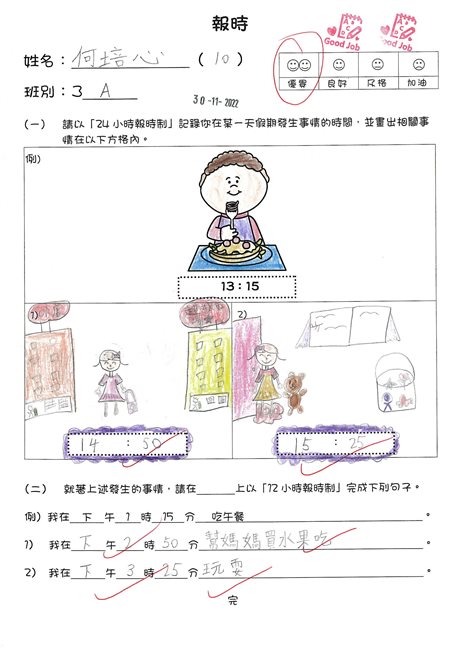 報時
Good Job
Good Job
姓名：何培心（10）
優異 良好 及格 加油
班別：3 A
30-11-2022
(一) 請以「24小時報時制」記錄你在某一天假期發生事情的時間，並畫出相關事
情在以下方格內。
例)
13:15
1)
2)
14 : 50
15 : 25
(二) 就著上述發生的事情，請在______上以「12小時報時制」完成下列句子。
例) 我在 下 午 1 時 15 分 吃午餐 。
1) 我在 下 午 2 時 50 分 幫媽媽買水果吃 。
2) 我在 下 午 3 時 25 分 玩耍 。
完